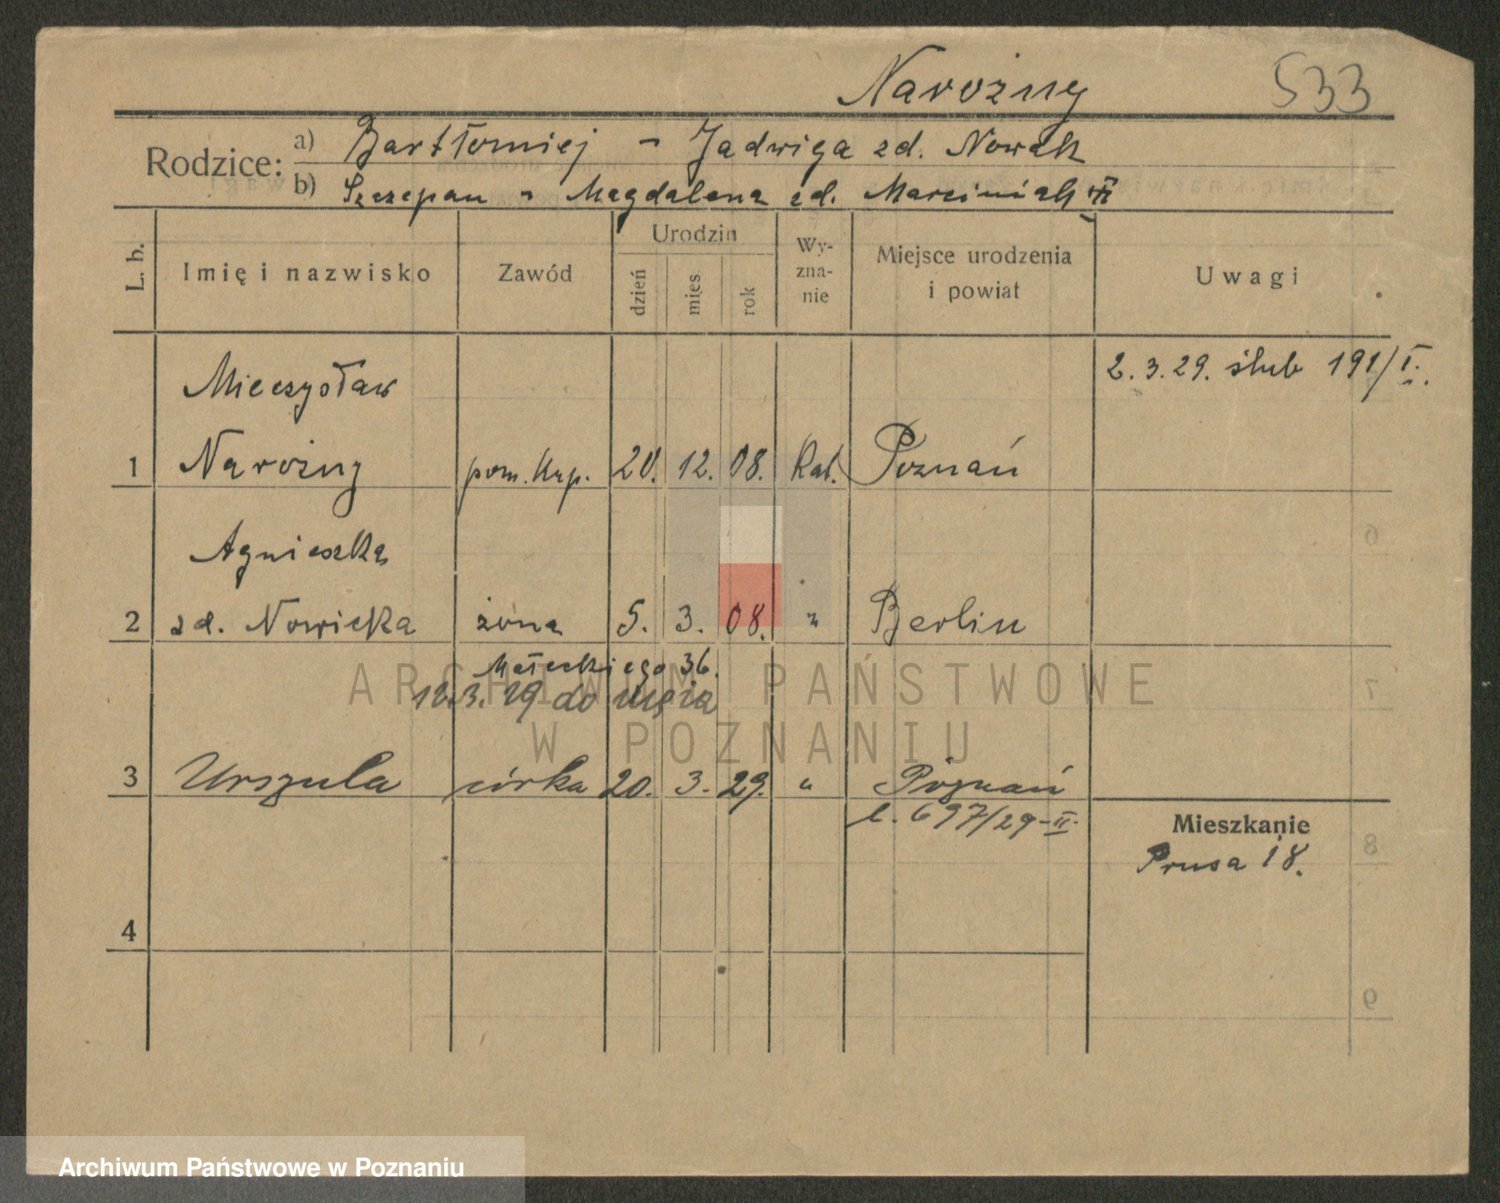 Narożny 533
Rodzice: a) Bartłomiej – Jadwiga zd. Nowak
b) Szczepan – Magdalena zd. Marciniak
L. b.
Imię i nazwisko
Zawód
Urodzin
dzień
mies
rok
Wy-
zna-
nie
Miejsce urodzenia
i powiat
Uwagi
2.3.29. ślub 191/I.
Mieczysław
1 Narożny pom. kup. 20. 12. 08. Kat. Poznań
Agnieszka
2 zd. Nowicka żona 5. 3. 08. " Berlin
Małeckiego 36.
12.3.29 do męża
3 Urszula córka 20. 3. 29. " Poznań
l. 697/29-II.
Mieszkanie
Prusa 18.
4
6
7
8
9
ARCHIWUM PAŃSTWOWE
W POZNANIU
Archiwum Państwowe w Poznaniu